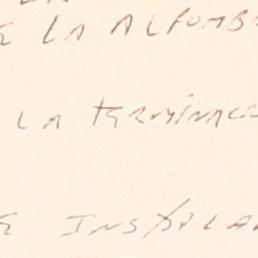 E LA ALFOMB
LA TERMINAC
E INSTALA